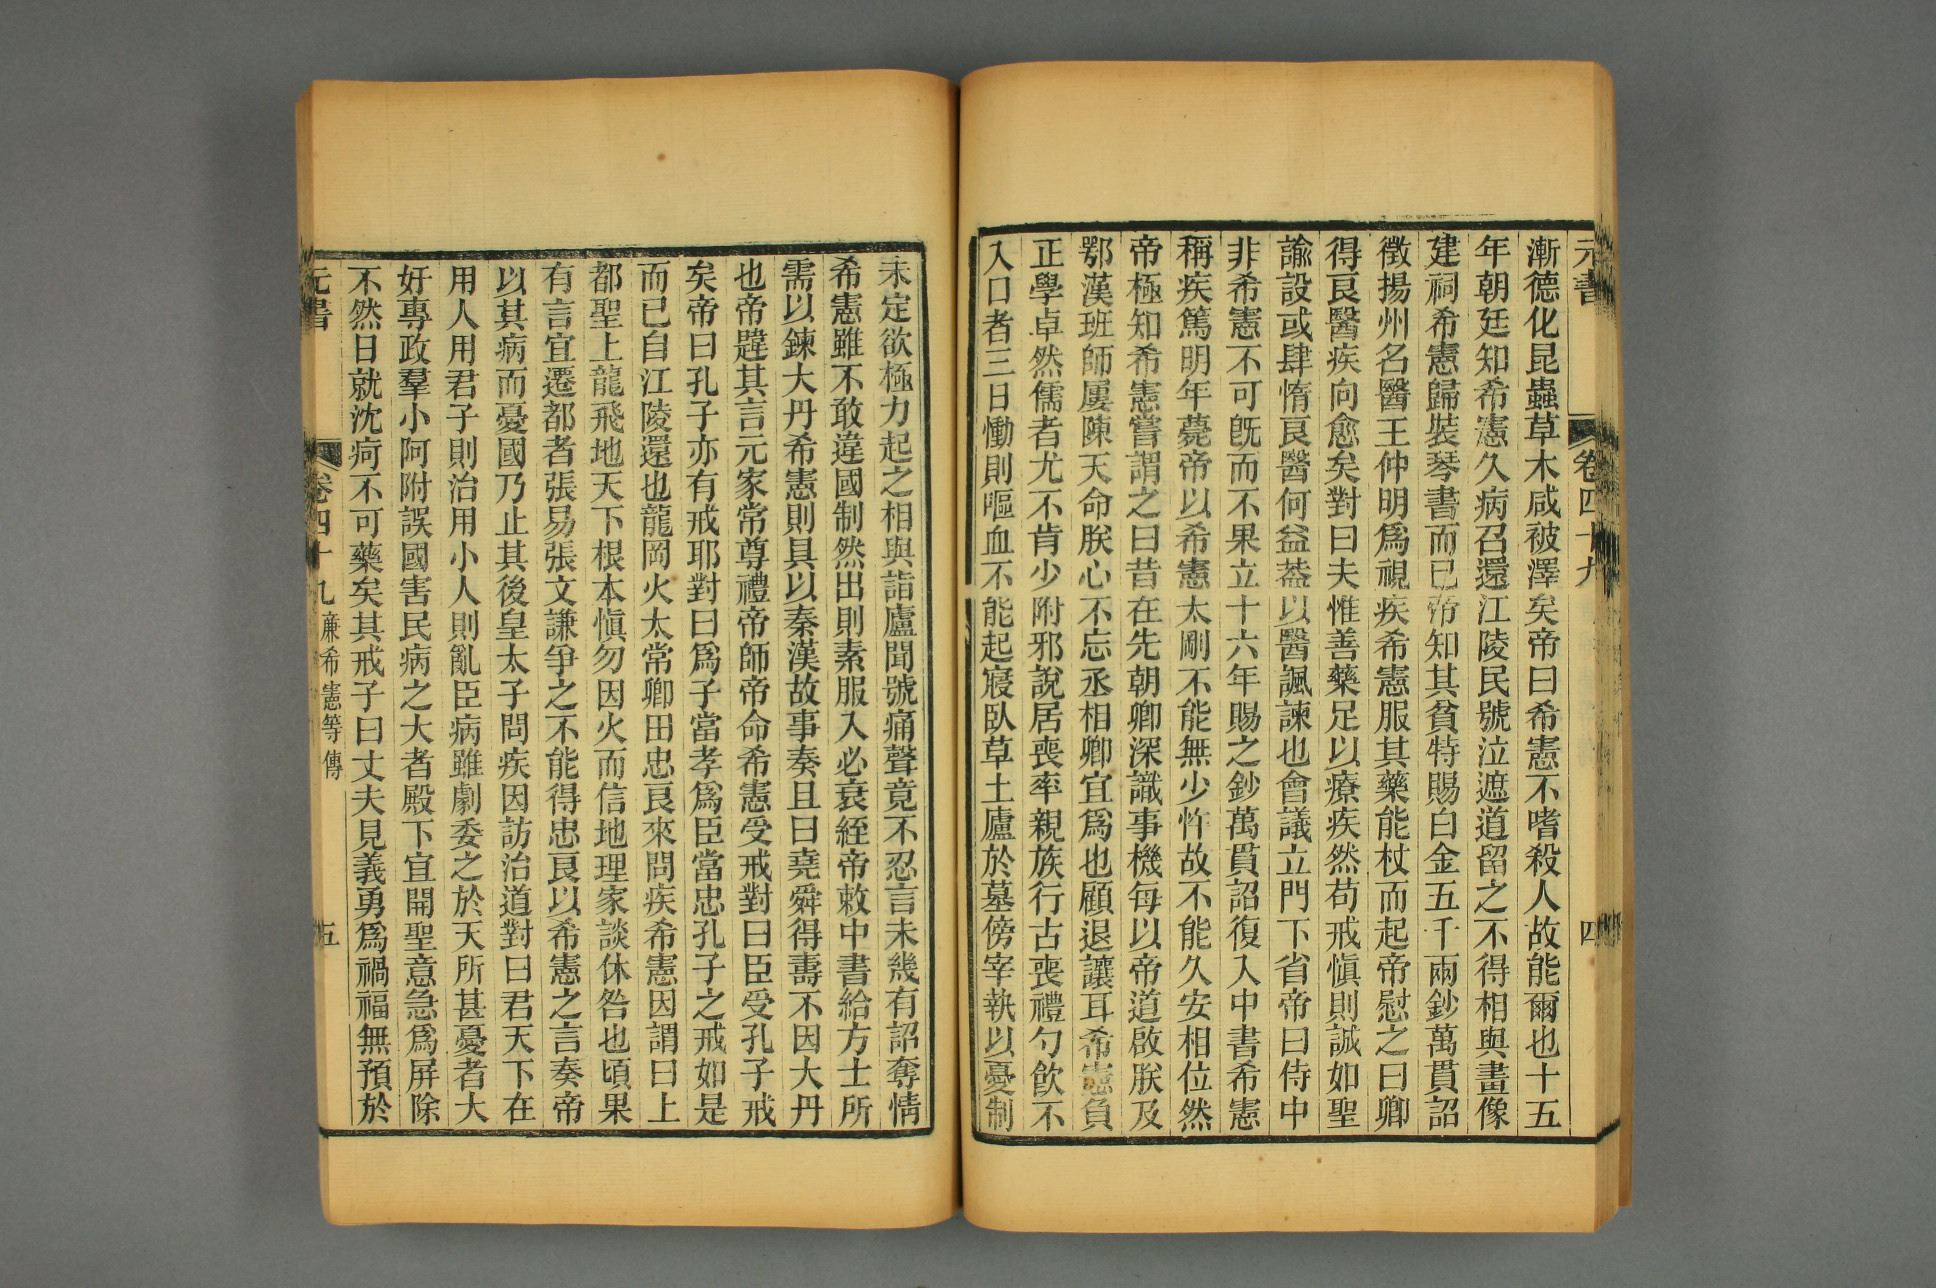 元書 卷四十九 四
漸德化昆蟲草木咸被澤矣帝曰希憲不嗜殺人故能爾也十五
年朝廷知希憲久病召還江陵民號泣遮道留之不得相與畫像
建祠希憲歸裝琴書而已帝知其貧特賜白金五千兩鈔萬貫詔
徵揚州名醫王仲明爲視疾希憲服其藥能杖而起帝慰之曰卿
得良醫疾向愈矣對曰夫惟善藥足以療疾然苟戒慎則誠如聖
諭設或肆惰良醫何益葢以醫諷諫也會議立門下省帝曰侍中
非希憲不可旣而不果立十六年賜之鈔萬貫詔復入中書希憲
稱疾篤明年薨帝以希憲太剛不能無少忤故不能久安相位然
帝極知希憲嘗謂之曰昔在先朝卿深識事機每以帝道啟朕及
鄂漢班師屢陳天命朕心不忘丞相卿宜爲也顧退讓耳希憲負
正學卓然儒者尤不肯少附邪說居喪率親族行古喪禮勺飲不
入口者三日慟則嘔血不能起寢臥草土廬於墓傍宰執以憂制
未定欲極力起之相與詣廬聞號痛聲竟不忍言未幾有詔奪情
希憲雖不敢違國制然出則素服入必衰絰帝敕中書給方士所
需以鍊大丹希憲則具以秦漢故事奏且曰堯舜得壽不因大丹
也帝韙其言元家常尊禮帝師帝命希憲受戒對曰臣受孔子戒
矣帝曰孔子亦有戒耶對曰爲子當孝爲臣當忠孔子之戒如是
而已自江陵還也龍岡火太常卿田忠良來問疾希憲因謂曰上
都聖上龍飛地天下根本愼勿因火而信地理家談休咎也頃果
有言宜遷都者張易張文謙爭之不能得忠良以希憲之言奏帝
以其病而憂國乃止其後皇太子問疾因訪治道對曰君天下在
用人用君子則治用小人則亂臣病雖劇委之於天所甚憂者大
奸專政羣小阿附誤國害民病之大者殿下宜開聖意急爲屏除
不然日就沈疴不可藥矣其戒子曰丈夫見義勇爲禍福無預於
元書 卷四十九 廉希憲等傳 五